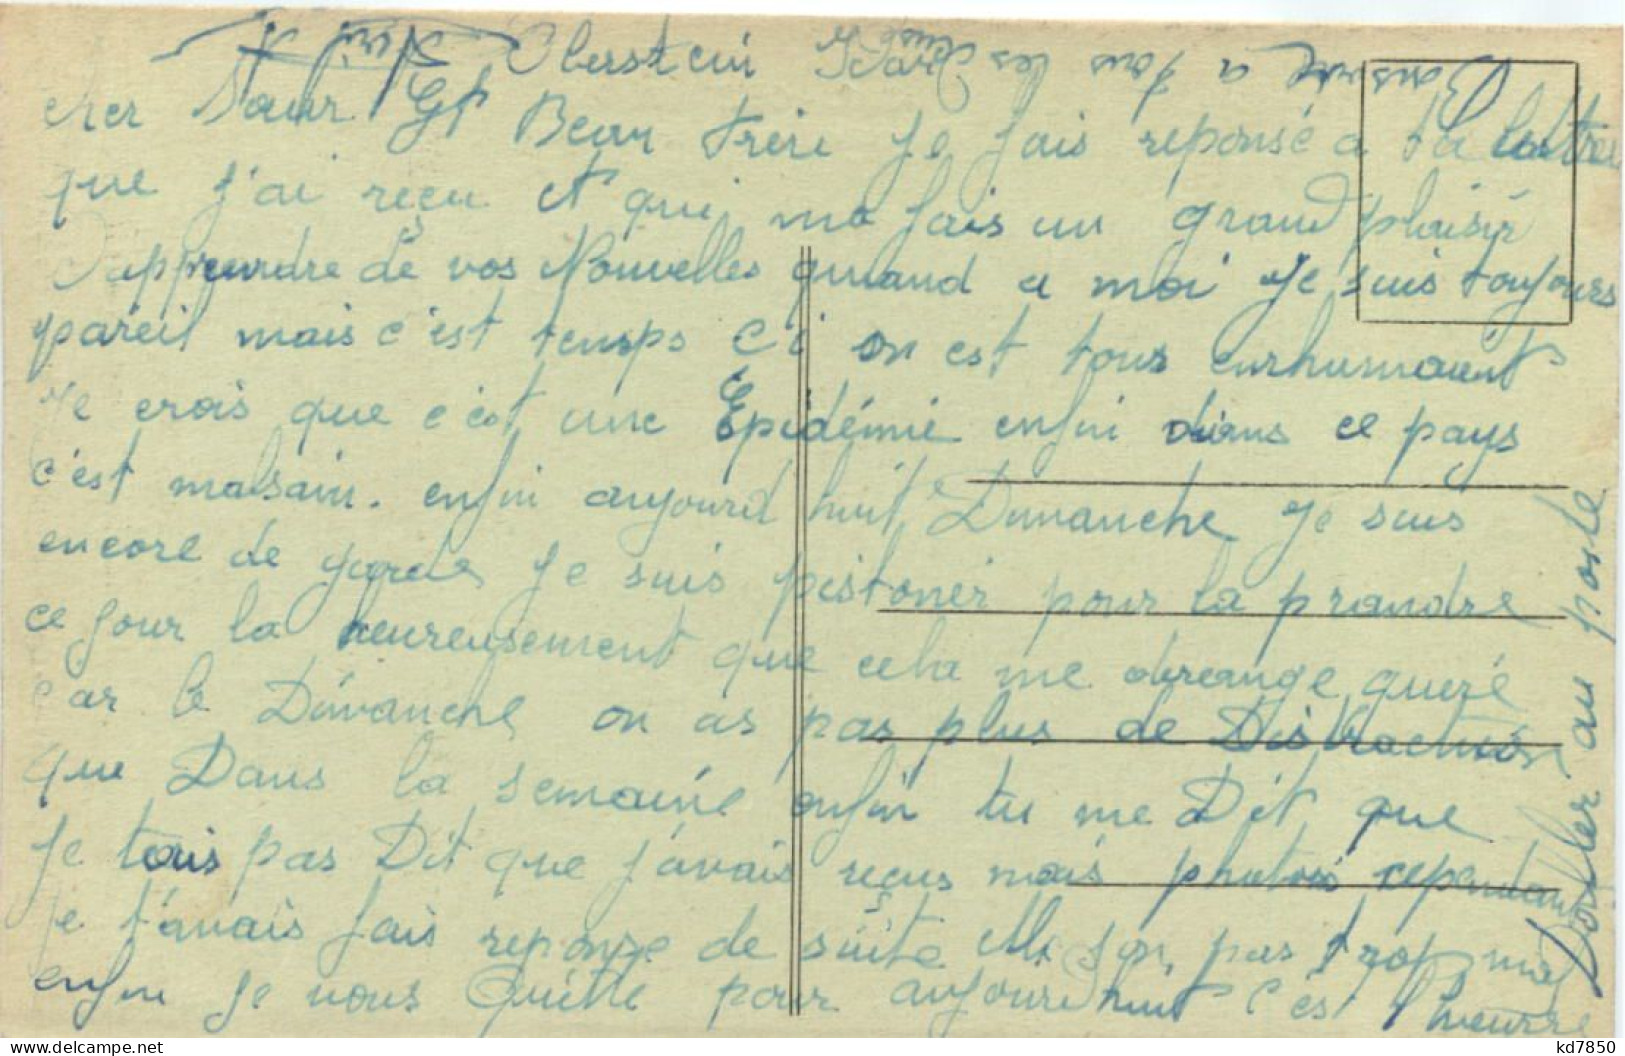 Oberstein
cher Sœur Et Beau frère Je fais reponsé a ta lettre
que j'ai reçu et qui me fais un grand plaisir
D'apprendre de vos Nouvelles quuand a moi Je suis toujours
pareil mais c'est temps ci on est tous enrhumaent
Je crois que c'est une Epidémie enfin dans ce pays
c'est malsain. enfin aujourd huit Dimanche Je suis
encore de garde Je suis pistoner pour la prandre
ce jour la heureusement que cela me derange queré
car le Dimanche on as pas plus de Distraction
que Dans la semaine enfin tu me Dit que
Je tais pas Dit que j'avais reçus mais photos cependant
Je t'avais fais reponse de suite son pas trop mal
enfin Je vous Quitte pour aujourd huit C'est l'heurre
au poste
Bonsoir a tous les deux
kd7850